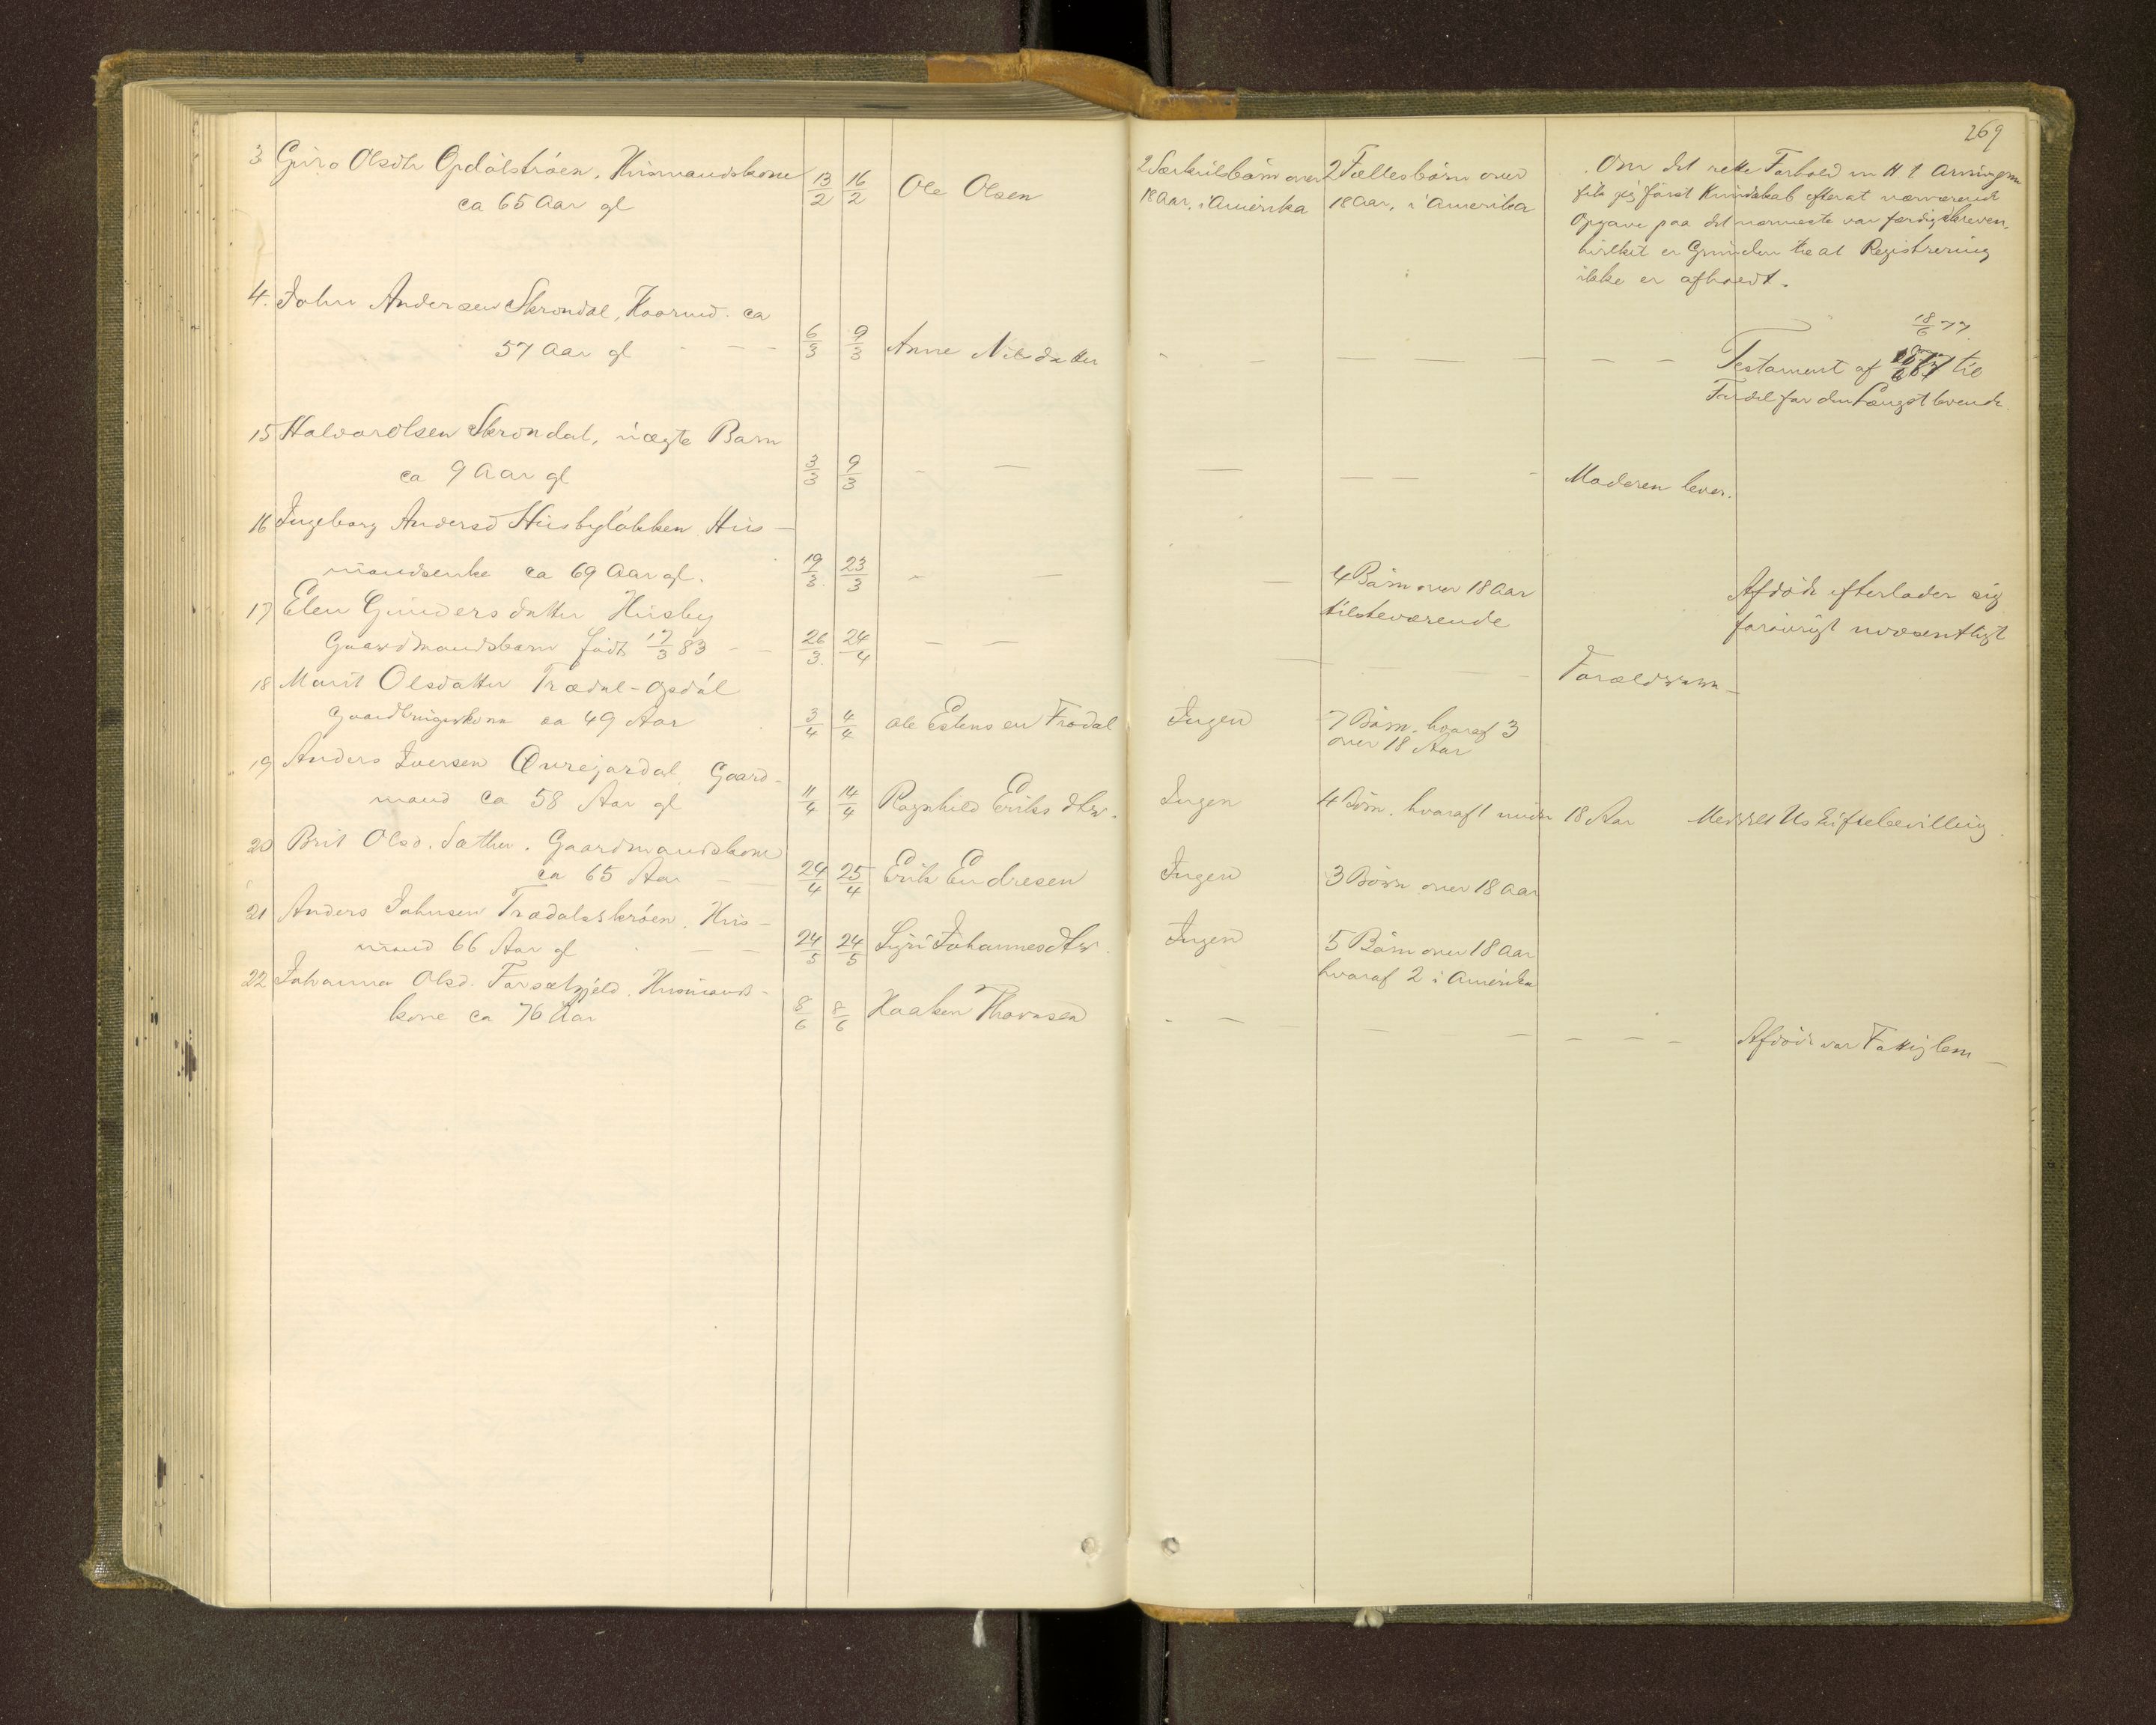 269
3 Guro Olsdtr Opdalstrøen, Husmandskone 13/2 16/2 Ole Olsen 2 Særkuldsbørn over 2 Fællesbørn over Om det rette Forhold m H t Arvingerne
ca 65 Aar gl 18 Aar, i Amerika 18 Aar, i Amerika fik jeg først Kundskab efterat nærværende
Opgave paa det nærmeste var færdigskreven,
hvilket er Grunden til at Registrering
ikke er afholdt.
4. John Andersen Skrondal, Kaarmd. ca 18/6 77.
57 Aar gl 6/3 9/3 Anne Nilsdatter Testament af til
Fordel for den Længstlevende.
15 Halvor Olsen Skrondal, uægte Barn
ca 9 Aar gl 3/3 9/3 Moderen lever.
16 Ingeborg Andersd Husbyløkken Hus-
mandsenke ca 69 Aar gl. 19/3. 23/3 4 Børn over 18 Aar Afdøde efterlader sig
tilsteværende forøvrigt uvæsentligt
17 Elen Gundersdatter Husby
Gaardmandsbarn født 17/3 83 26/3. 24/4 Forældrene
18 Marit Olsdatter Trædal-Opdål
Gaardbrugerkone ca 49 Aar 3/4 4/4 Ole Estensen Trædal Ingen 7 Børn, hvoraf 3
over 18 Aar
19 Anders Iversen Gaard-
mand ca 58 Aar gl 11/4 14/4 Ragnhild Eriksdtr. Ingen 4 Børn, hvoraf 1 under 18 Aar Meddelt Uskiftebevilling.
20 Brit Olsd. Sæther. Gaardmandskone
ca 65 Aar 24/4 25/4 Erik Endresen Ingen 3 Børn over 18 Aar
21 Anders Johnsen Trædalsstrøen. Hus-
mand 66 Aar gl 24/5 24/5 Siri Johannesdtr. Ingen 5 Børn over 18 Aar
hvoraf 2 i Amerika
22 Johanna Olsd. Husmands-
kone ca 76 Aar 8/6 8/6 Haaken Thoresen Afdøde var Fattiglem